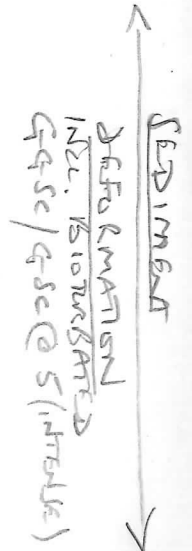 SEDIMENT
DEFORMATION
INCL. BIOTURBATED
GGSC/GSC@5 (INTENSE)